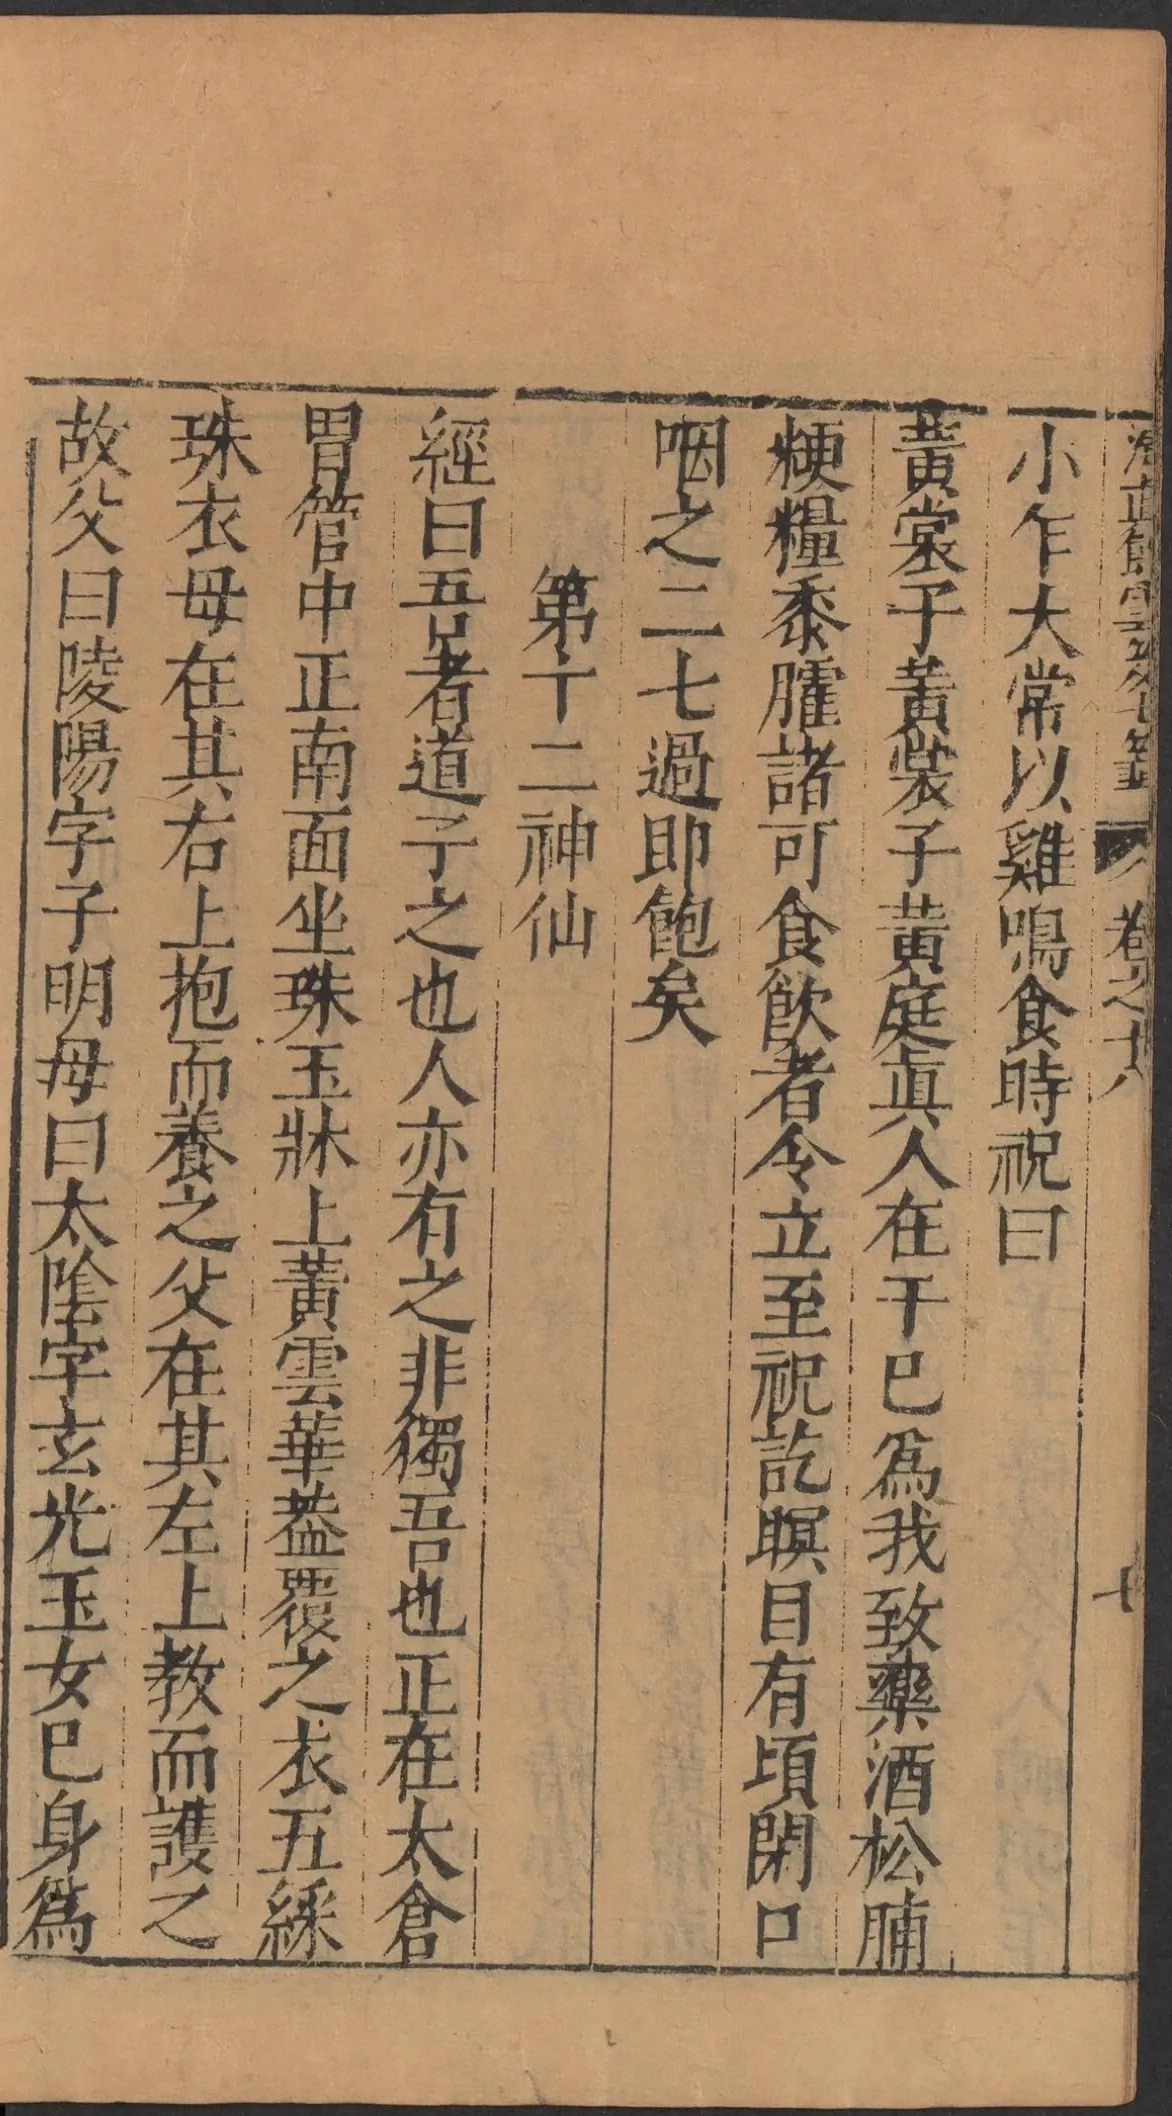 清真館雲笈七籤 卷之十八 七
小乍大常以雞鳴食時祝曰
黃裳子黃裳子黃庭真人在于巳為我致藥酒松脯
粳糧黍臛諸可食飲者令立至祝訖瞑目有頃閉口
咽之二七過即飽矣
第十二神仙
經曰吾者道子之也人亦有之非獨吾也正在太倉
胃管中正南面坐珠玉牀上黃雲華葢覆之衣五綵
珠衣母在其右上抱而養之父在其左上教而護之
故父曰陵陽字子明母曰太陰字玄光玉女巳身為